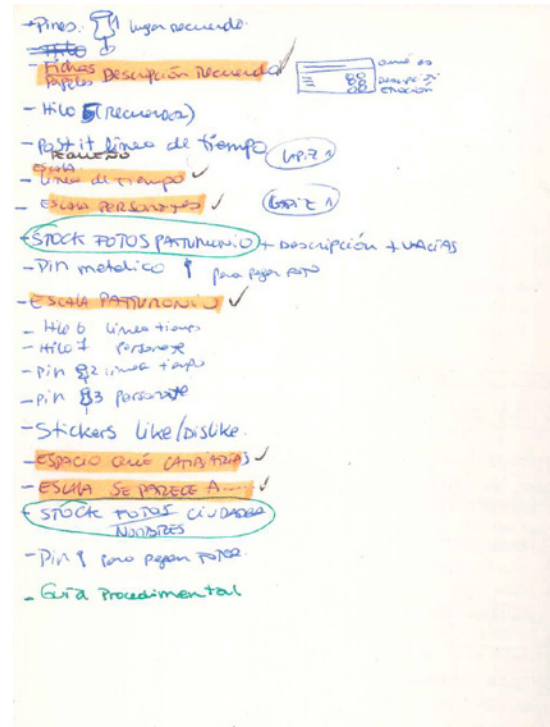 - Pines. 1 lugar recuerdo.
- Hilo
- Fichas Papeles Descripción Recuerdo ✓
descripción
emoción
- Hilo 5 (recuerdos)
- Post it línea de tiempo
PEQUEÑO
LAPIZ 1
ESCALA
- Línea de tiempo ✓
- ESCALA PERSONAJES ✓
LAPIZ 1
- STOCK FOTOS PATRIMONIO + Descripción + VACIAS
- Pin metalico para pegar foto
- ESCALA PATRIMONIO ✓
- Hilo 6 línea tiempo
- Hilo 7 personaje
- Pin 2 línea tiempo
- Pin 3 personaje
- Stickers Like/Dislike.
- ESPACIO QUÉ CAMBIARÍAS ✓
- ESCALA SE PARECE A..... ✓
- STOCK FOTOS CIUDADES
NOMBRES
- Pin para pegar FOTOS.
- Guía Procedimental